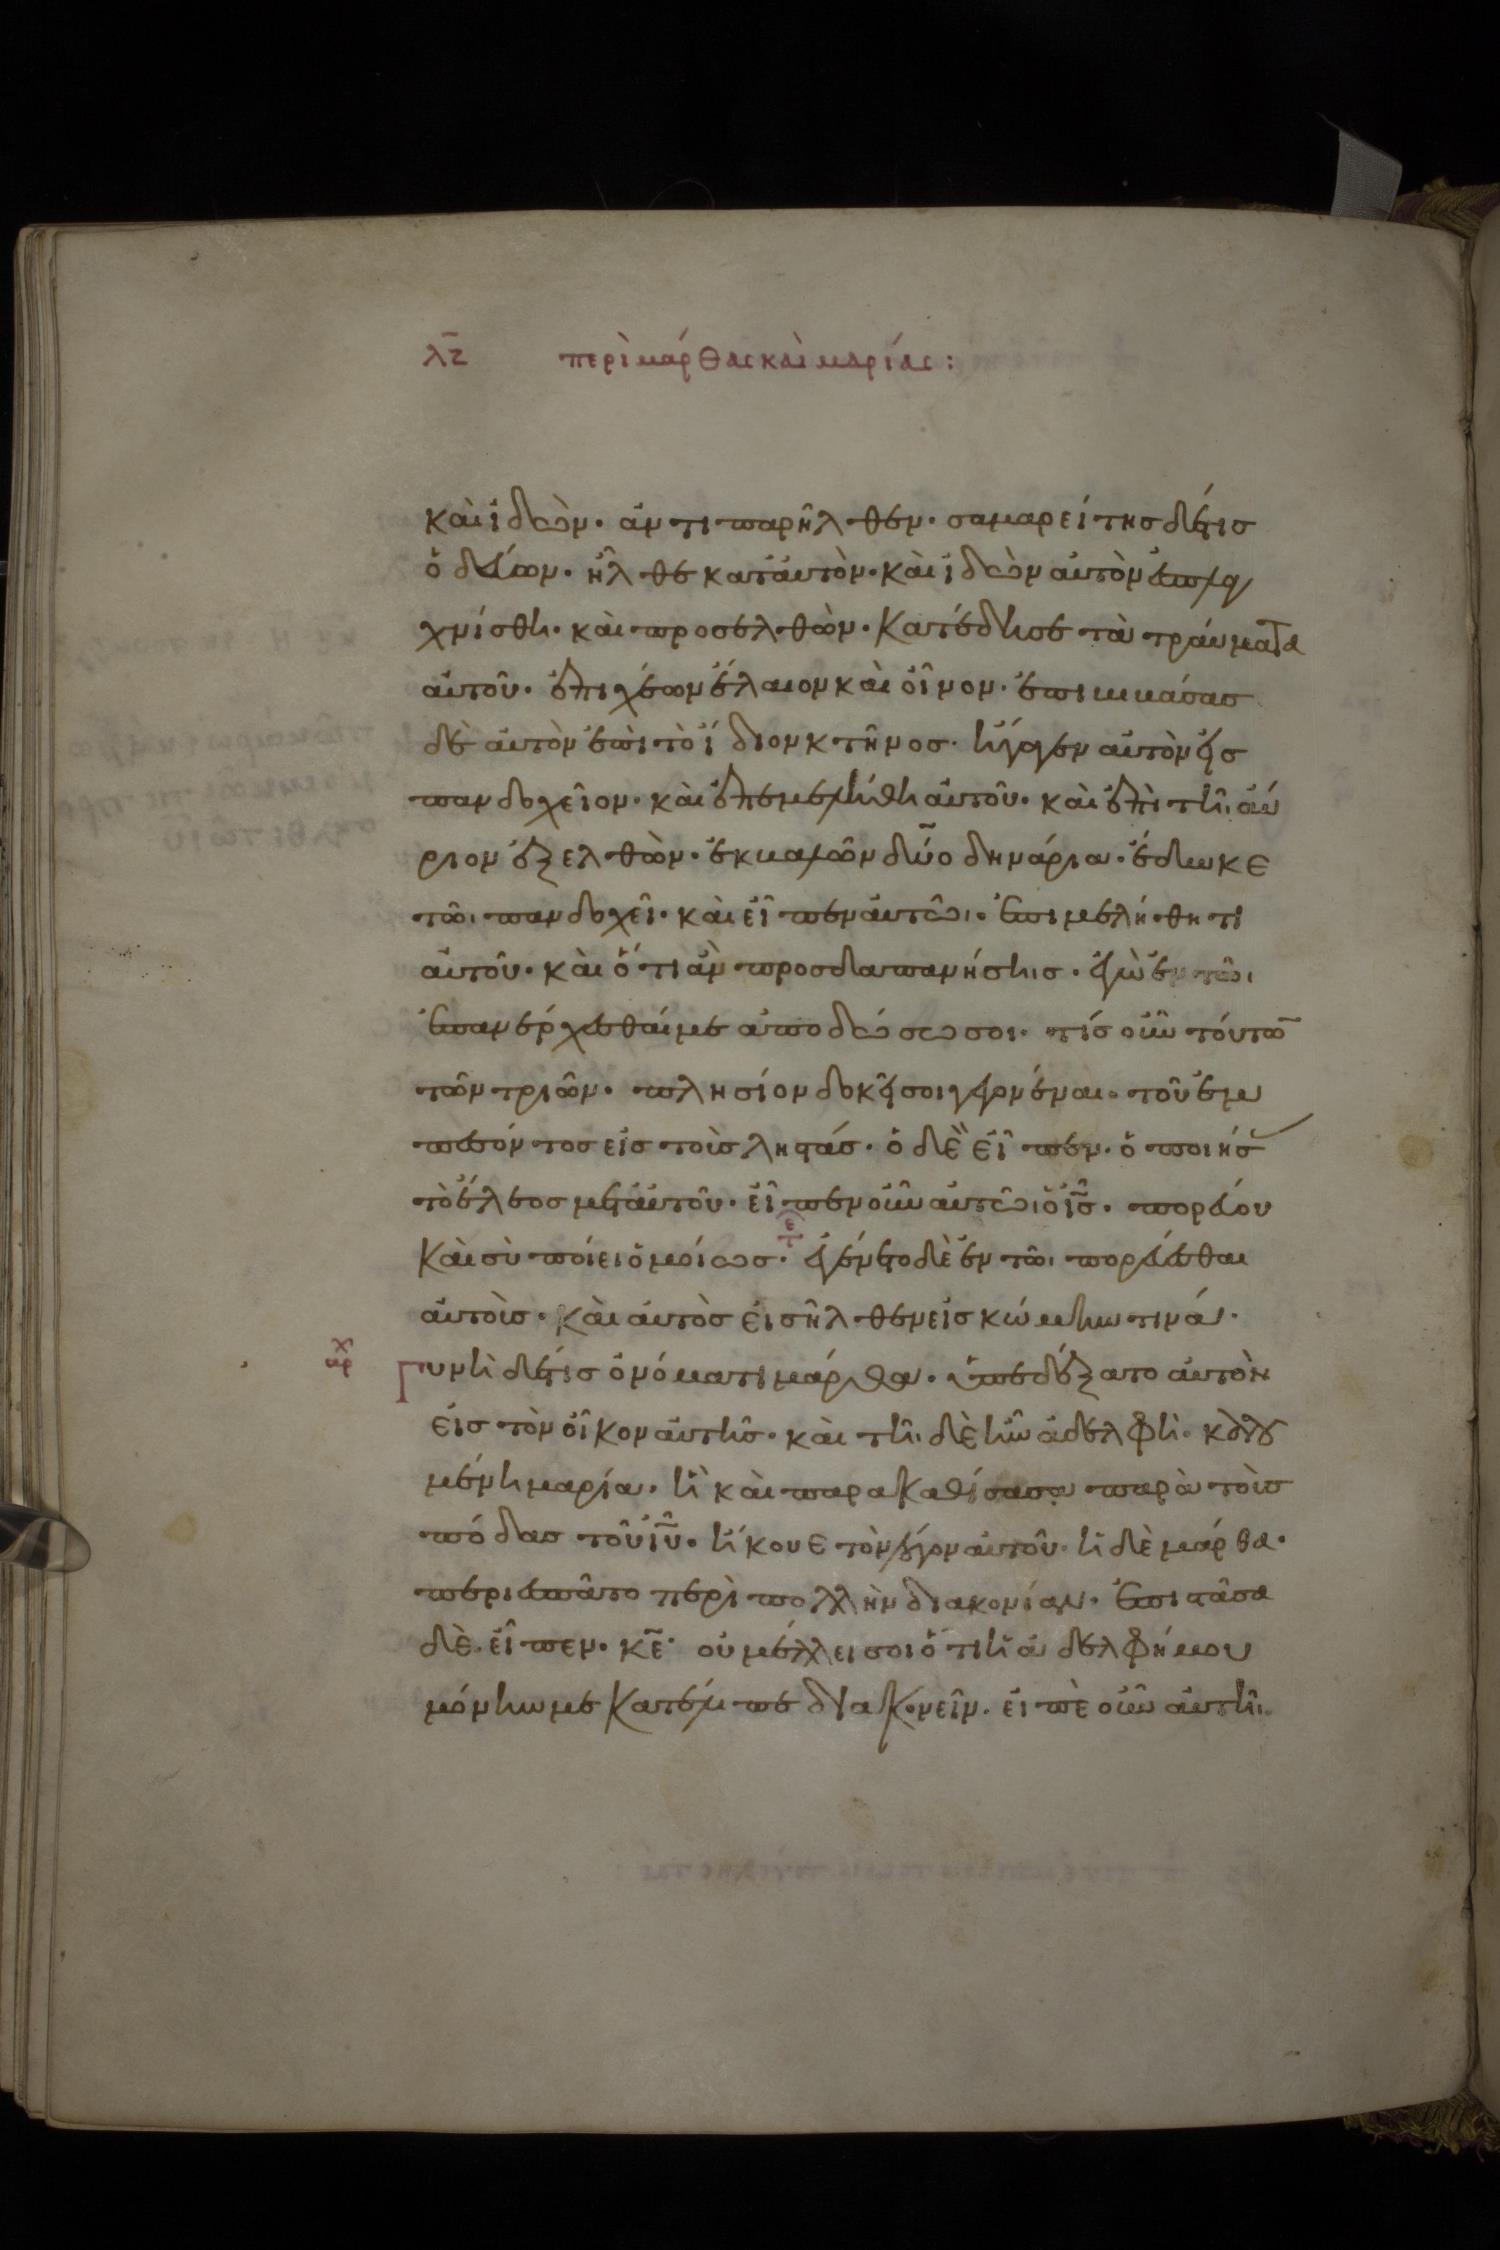 λζ περὶ μάρθας καὶ μαρίας:
καὶ ἰδὼν· ἀντιπαρῆλθεν· σαμαρείτης δέ τις
ὁδεύων· ἦλθε κατ' αὐτὸν· καὶ ἰδὼν αὐτὸν ἐσπλαγ
χνίσθη· καὶ προσελθὼν· κατέδησε τὰ τράυματα
αὐτοῦ· ἐπιχέων ἔλαιον καὶ οἶνον· ἐπιβιβάσας
δὲ αὐτὸν ἐπὶ τὸ ἴδιον κτῆνος· ἤγαγεν αὐτὸν εἰς
πανδοχεῖον· καὶ ἐπεμελήθη αὐτοῦ· καὶ ἐπὶ τὴν αὔ
ριον ἐξελθὼν· ἐκβαλὼν δύο δηνάρια· ἔδωκε
τῶι πανδοχεῖ· καὶ εἶπεν αὐτῶι· ἐπιμελήθητι
αὐτοῦ· καὶ ὅ τι ἂν προσδαπανήσηις· ἐγὼ ἐν τῶι
ἐπανέρχεσθαί με ἀποδώσω σοι· τίς οὖν τούτω̅
τῶν τριῶν· πλησίον δοκεῖ σοι γεγονέναι· τοῦ ἐμ
πεσόντος εἰς τοὺς ληστάς· ὁ δὲ εἶπεν· ὁ ποιήσ
τὸ ἔλεος μετ' αὐτοῦ· εἶπεν οὖν αὐτῶι ὁ ι̅ς̅· πορεύου
καὶ σὺ ποίει ὁμοίως· ἐγένετο δὲ ἐν τῶι πορεύεσθαι
αὐτοὺς· καὶ αὐτὸς εἰσῆλθεν εἰς κώμην τινά·
αρχ Γυνὴ δέ τις ὀνόματι μάρθα· ὑπεδέξατο αὐτὸν
εἰς τὸν οἶκον αὐτῆς· καὶ τῆι δὲ ἦν ἀδελφὴ· καλου
μένη μαρία· ἣ καὶ παρακαθίσασα παρὰ τοὺς
πόδας τοῦ ι̅υ̅· ἤκουε τὸν λόγον αὐτοῦ· ἡ δὲ μάρθα·
περιεσπᾶτο περὶ πολλὴν διακονίαν· ἐπιστᾶσα
δὲ εἶπεν· κ̅ε̅· οὐ μέλλει σοι ὅτι ἡ ἀδελφή μου
μόνην με κατέλιπε διακονεῖν· εἰπὲ οὖν αὐτῆι